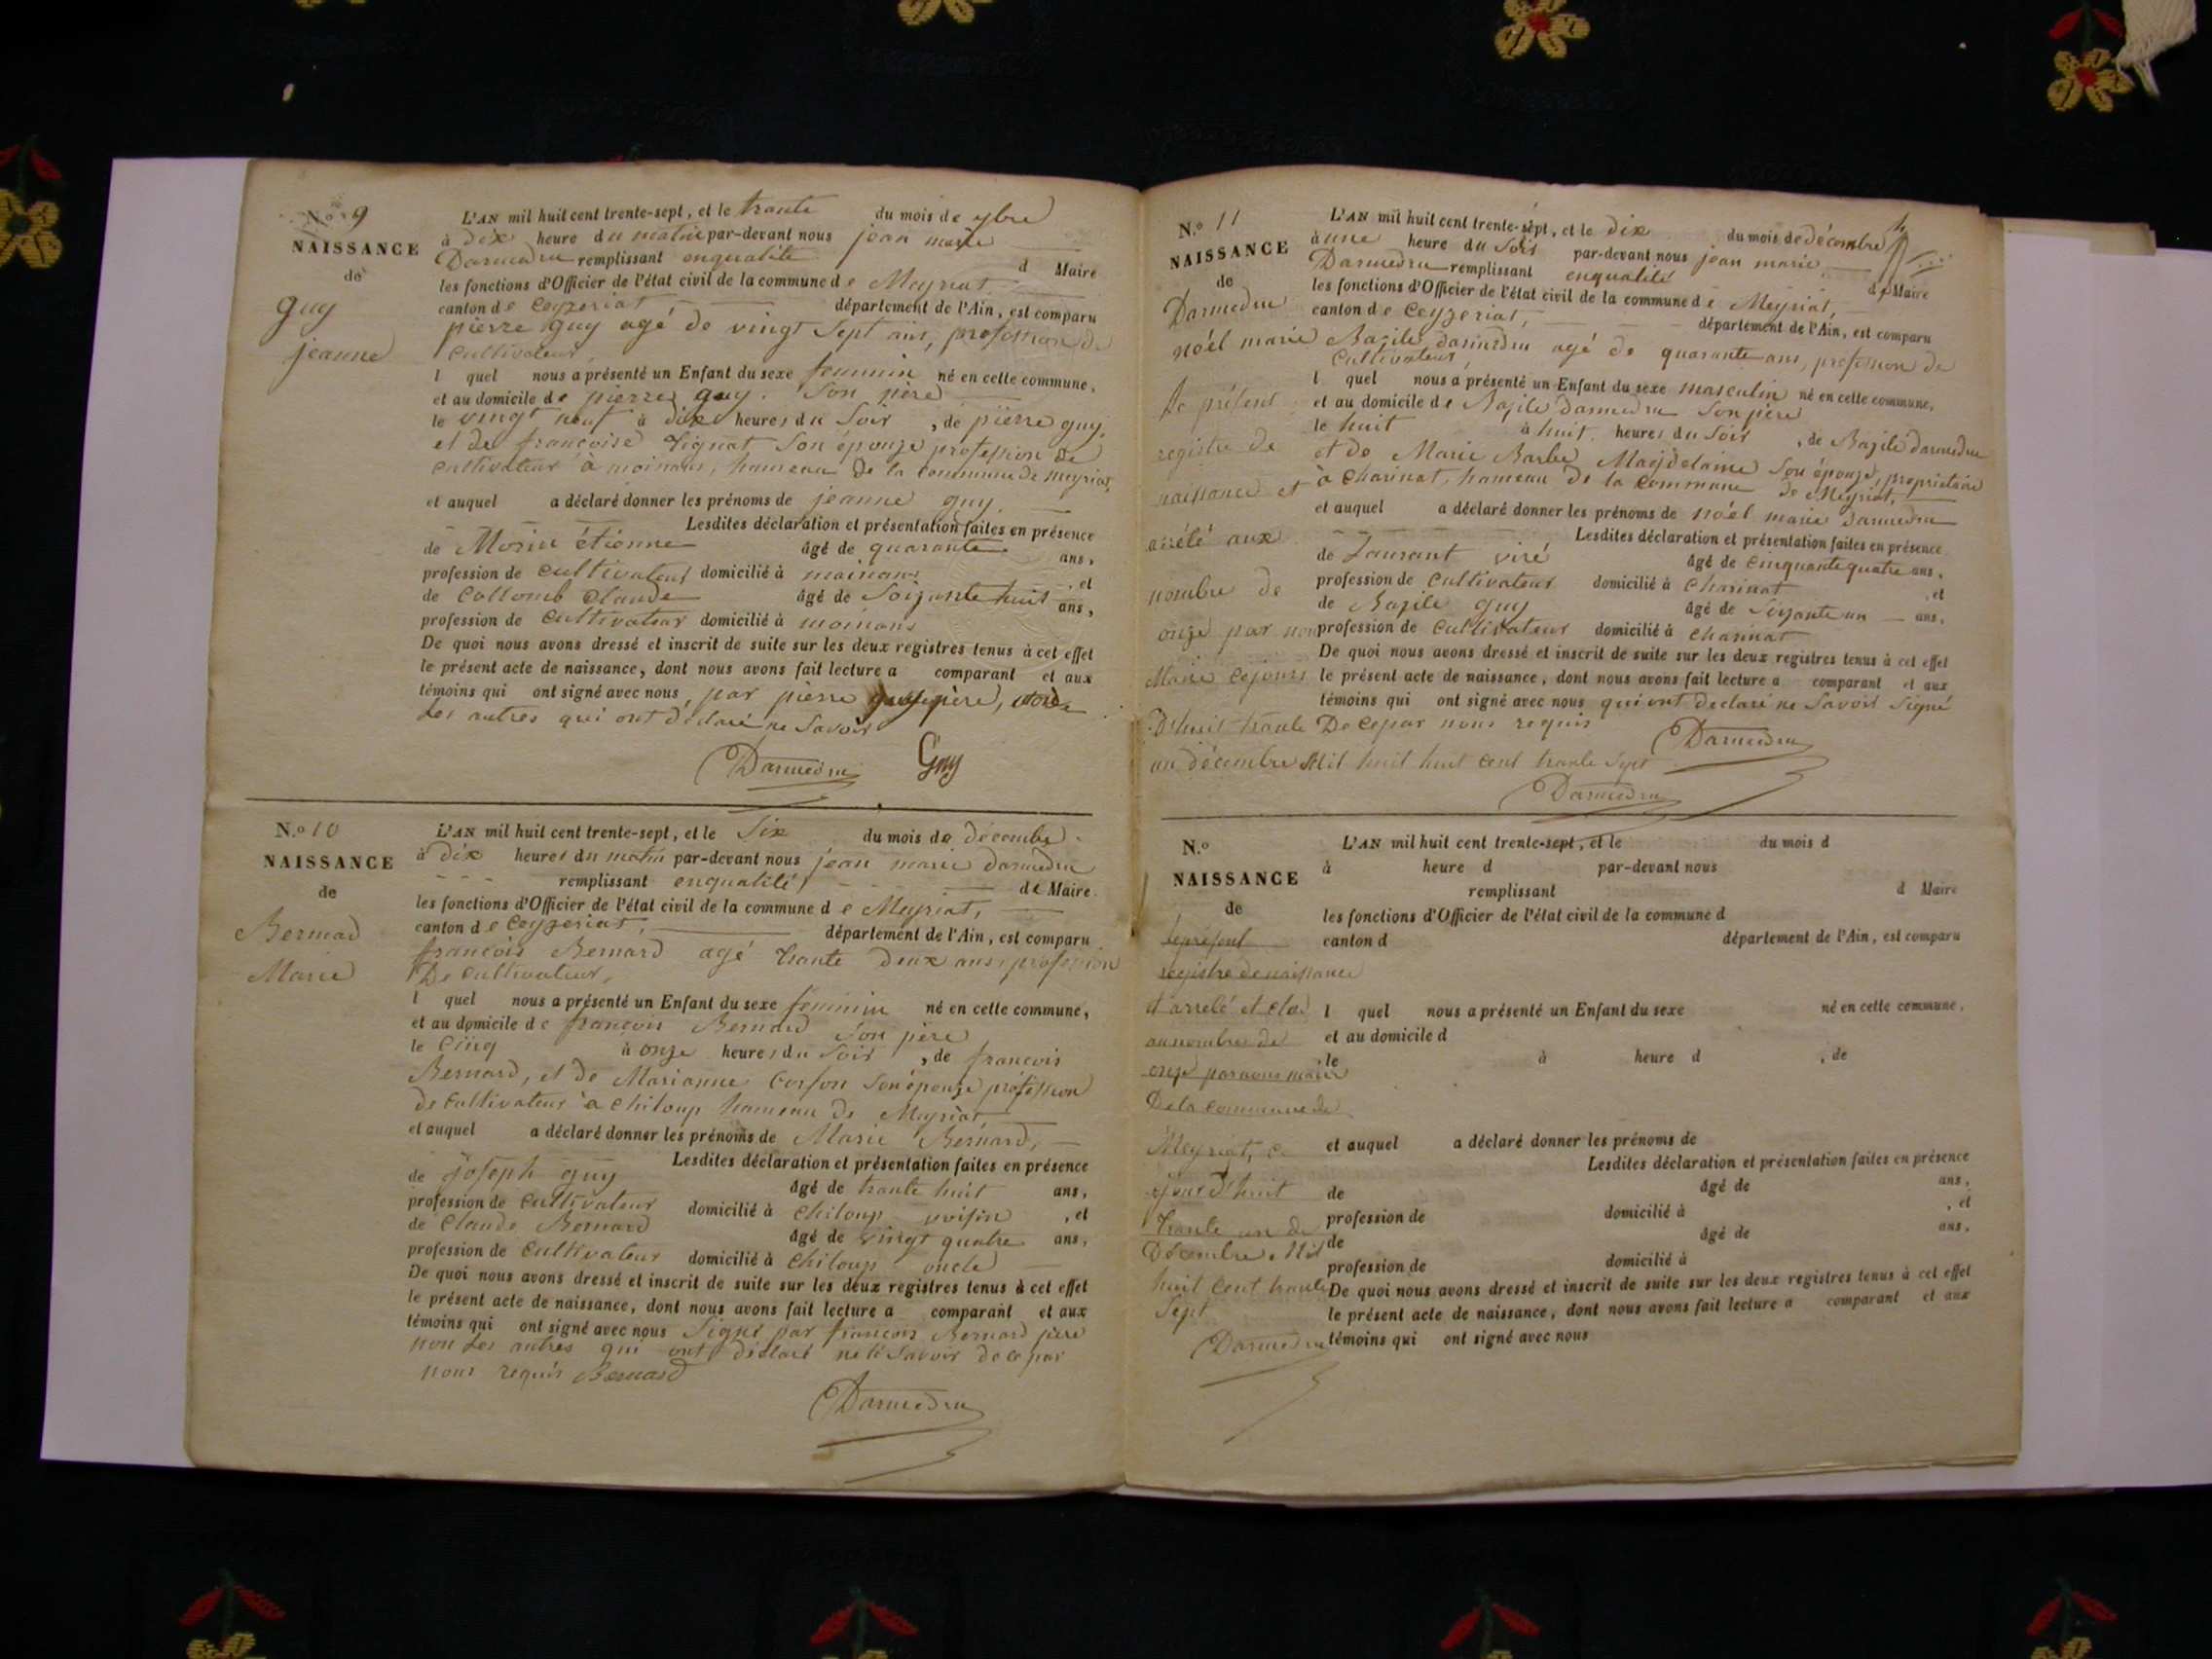 N.º 9
NAISSANCE
de
guy
jeanne
L'AN mil huit cent trente-sept, et le trante du mois de 9bre
à dix heure du matin par-devant nous jean marie
Darmedru remplissant enqualité d Maire
les fonctions d'Officier de l'état civil de la commune de Meyriat
canton de Ceyzeriat département de l'Ain, est comparu
pierre guy agé de vingt Sept ans, profession de
Cultivateur,
l quel nous a présenté un Enfant du sexe feminin né en cette commune,
et au domicile de pierre guy. Son père
le vingt neuf à dix heures du Soir, de pierre guy,
et de francoise Tignat Son épouze profession de
Cultivateur à moinans, hameau de la Commune de meyriat,
et auquel a déclaré donner les prénoms de jeanne guy.
Lesdites déclaration et présentation faites en présence
de Morin étienne âgé de quarante ans,
profession de Cultivateur domicilié à moinans, et
de Collomb Claude âgé de Soizante huit ans,
profession de Cultivateur domicilié à moinans
De quoi nous avons dressé et inscrit de suite sur les deux registres tenus à cet effet
le présent acte de naissance, dont nous avons fait lecture a comparant et aux
témoins qui ont signé avec nous, par pierre père,
Les autres qui ont déclaré ne Savoir
Darmedru Guy
N.º 10
NAISSANCE
de
Bernard
Marie
L'AN mil huit cent trente-sept, et le Six du mois de décembre
à dix heures du matin par-devant nous jean marie darmedru
remplissant enqualité de Maire
les fonctions d'Officier de l'état civil de la commune de Meyriat,
canton de Ceyzeriat, département de l'Ain, est comparu
francois Bernard agé trante deux ans, profession
De Cultivateur,
l quel nous a présenté un Enfant du sexe feminin né en cette commune,
et au domicile de francois Bernard Son père
le Cinq à onze heures du Soir, de francois
Bernard, et de Marianne Corson Son épouze profession
de Cultivateur à Chiloup hameau de Meyriat
et auquel a déclaré donner les prénoms de Marie Bernard,
Lesdites déclaration et présentation faites en présence
de joseph guy âgé de trante huit ans,
profession de Cultivateur domicilié à Chiloup voisin, et
de Claude Bernard âgé de vingt quatre ans,
profession de Cultivateur domicilié à Chiloup oncle
De quoi nous avons dressé et inscrit de suite sur les deux registres tenus à cet effet
le présent acte de naissance, dont nous avons fait lecture a comparant et aux
témoins qui ont signé avec nous Signé par francois Bernard père
non Les autres qui ont déclaré ne le Savoir de ce par
nous requis Bernard
Darmedru
N.º 11
NAISSANCE
de
Darmedru
noél marie
Le présent
registre de
naissance et
arrété aux
nombre de
onze par nous
Maire cejours
D'huit trante
un décembre Mil huit huit cent trante Sept
L'AN mil huit cent trente-sept, et le dix du mois de décembre
à une heure du Soir par-devant nous jean marie
Darmedru remplissant enqualité de Maire
les fonctions d'Officier de l'état civil de la commune de Meyriat,
canton de Ceyzeriat, département de l'Ain, est comparu
Bazile darmedru agé de quarante ans, profession de
Cultivateur,
l quel nous a présenté un Enfant du sexe masculin né en cette commune,
et au domicile de Bazile darmedru Son père
le huit à huit heures du Soir, de Bazile darmedru
et de Marie Barbe Magdelaine Son épouze, propriétaire
à Charinat, hameau de la Commune de Meyriat,
et auquel a déclaré donner les prénoms de noél marie darmedru
Lesdites déclaration et présentation faites en présence
de Laurant viré âgé de Cinquante quatre ans,
profession de Cultivateur domicilié à Charinat, et
de Bazile guy âgé de Soizante un ans,
profession de Cultivateur domicilié à Charinat
De quoi nous avons dressé et inscrit de suite sur les deux registres tenus à cet effet
le présent acte de naissance, dont nous avons fait lecture a comparant et aux
témoins qui ont signé avec nous qui ont declaré ne Savoir Signé
De ce par nous requis Darmedru
Darmedru
N.º
NAISSANCE
de
Le présent
registre de naissance
et arreté et clos
au nombre de
onze par nous maire
De la Commune de
Meyriat, ce
jour D'huit
trante un de
Décembre Mil
huit Cent trante
Sept
Darmedru
L'AN mil huit cent trente-sept, et le du mois d
à heure d par-devant nous
remplissant d Maire
les fonctions d'Officier de l'état civil de la commune d
canton d département de l'Ain, est comparu
l quel nous a présenté un Enfant du sexe né en cette commune,
et au domicile d
le à heure d, de
et auquel a déclaré donner les prénoms de
Lesdites déclaration et présentation faites en présence
de âgé de ans,
profession de domicilié à, et
de âgé de ans,
profession de domicilié à
De quoi nous avons dressé et inscrit de suite sur les deux registres tenus à cet effet
le présent acte de naissance, dont nous avons fait lecture a comparant et aux
témoins qui ont signé avec nous